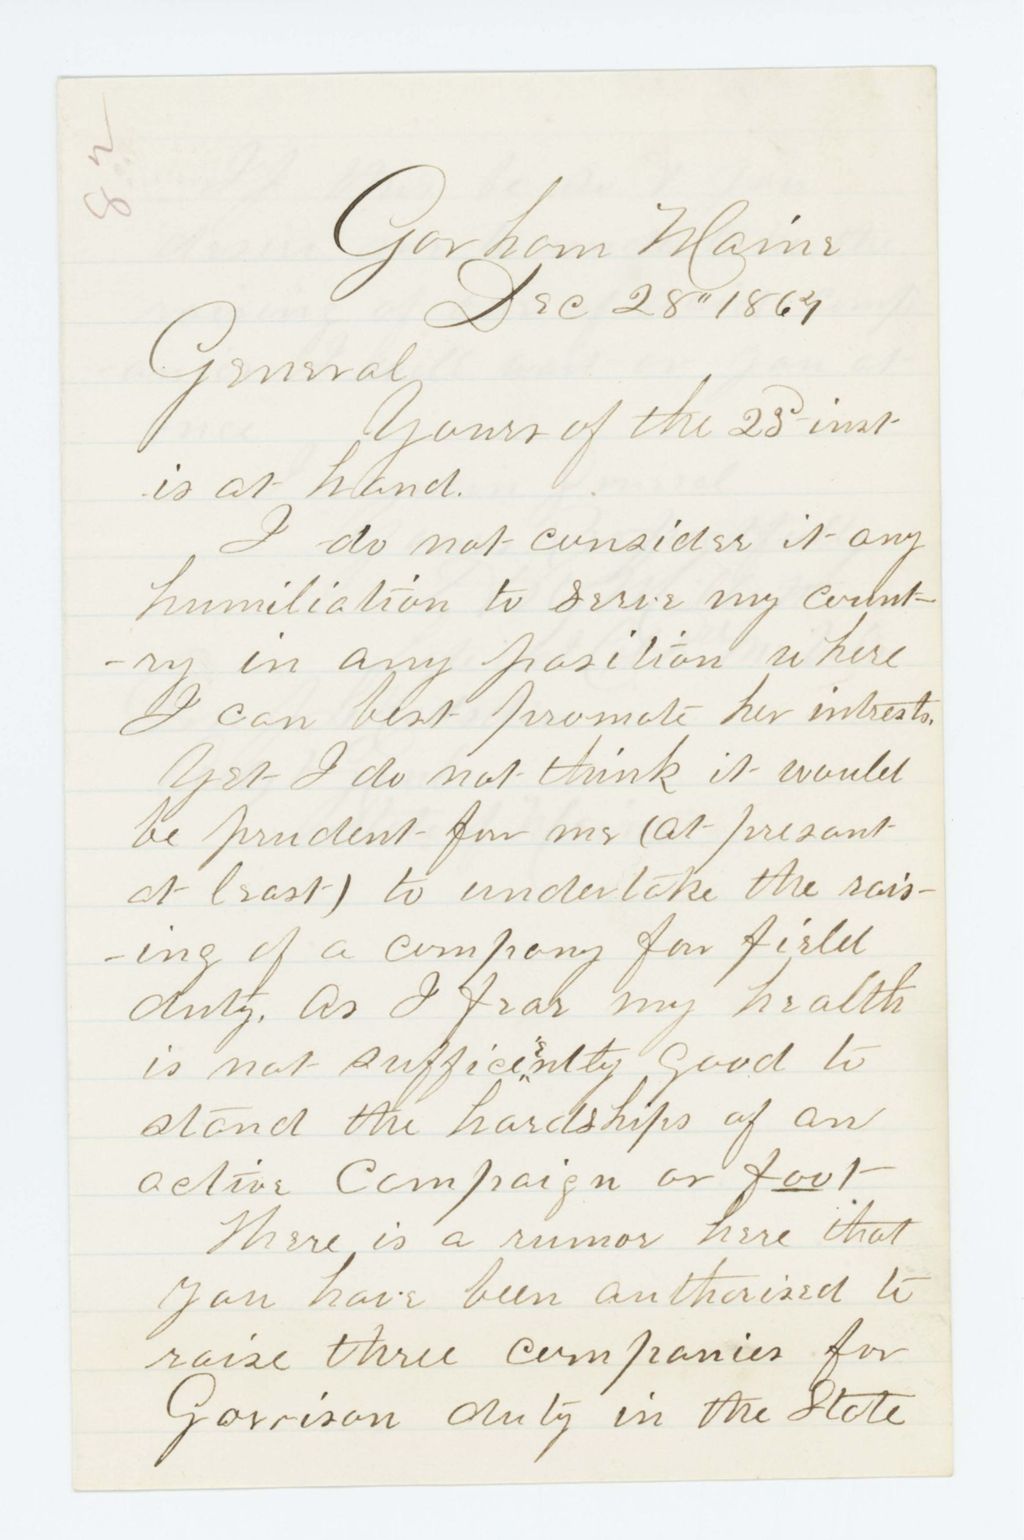 82
Gorham Maine
Dec 28" 1864
General
Yours of the 23d inst
is at hand.
I do not consider it any
humiliation to serve my count-
-ry in any position where
I can best promote her intrests.
Yet I do not think it would
be prudent for me (at presant
at least) to undertake the rais-
-ing of a company for field
duty. As I fear my health
is not sufficiently good to
stand the hardships of an
active Campaign on foot
There is a rumor here that
you have been authorised to
raise three companies for
Garrison duty in the State